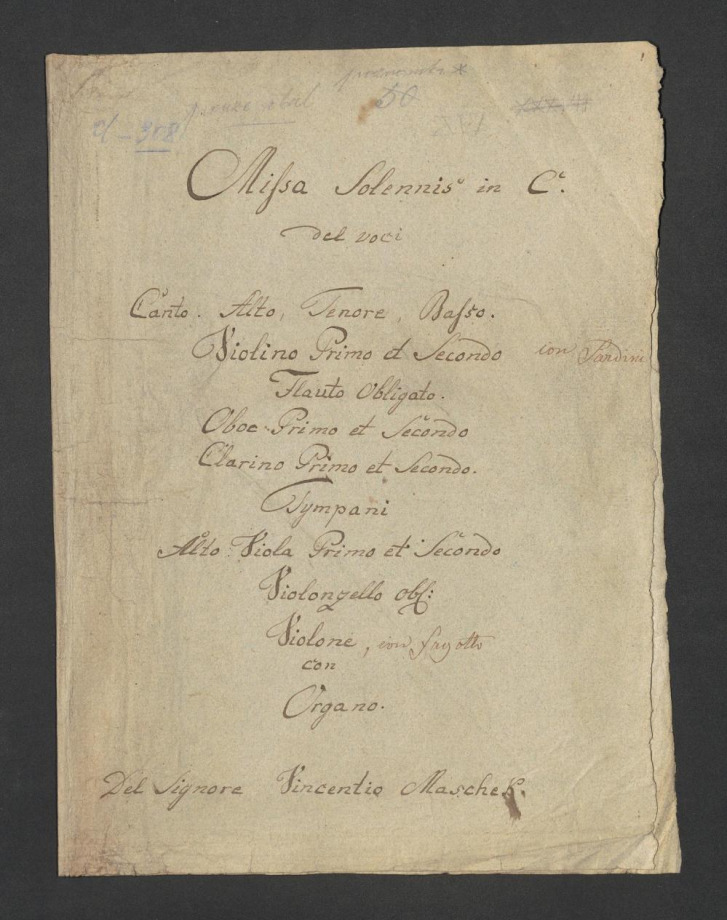 50
Missa Solennis in C.
del voci
Canto. Alto, Tenore, Basso.
Violino Primo et Secondo con Sardini
Flauto Obligato.
Oboe Primo et Secondo
Clarino Primo et Secondo.
Tympani
Alto Viola Primo et Secondo
Violonzello obl:
Violone, con fagotto
con
Organo.
Del Signore Vincentio Maschek.